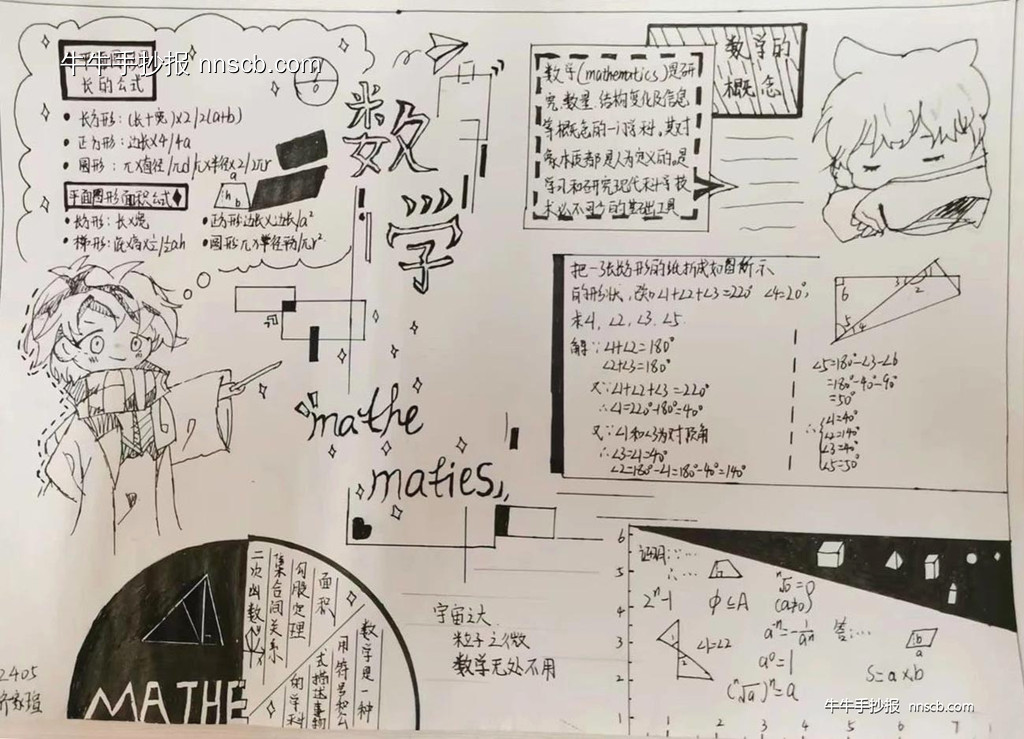 牛牛手抄报 nnscb.com
长的公式
长方形：(长+宽)×2/2(a+b)
正方形：边长×4/4a
圆形：π×直径/πd/π×半径×2/2πr
平面图形面积公式
长方形：长×宽
正方形边长×边长/a²
梯形：底×高×½/½ah
圆形π×半径平方/πr²
a
h b
数学
mathe
maties
数学的
概念
数学(mathematics)是研
究数量、结构变化及信息
等概念的一门学科。其对
象本质都是人为定义的。是
学习和研究现代科学技
术必不可少的基础工具
把一张长方形的纸折成如图所示
的形状，已知∠1+∠2+∠3=220° ∠4=20°,
求∠1、∠2、∠3、∠5.
解：∵∠1+∠2=180°
∠2+∠3=180°
又∵∠1+∠2+∠3=220°
∴∠1=220°-180°=40°
又∵∠1和∠3为对顶角
∴∠3=∠1=40°
∠2=180°-∠1=180°-40°=140°
6
3 1
2
5 4
∠5=180°-∠3-∠6
=180°-40°-90°
=50°
∴
∠1=40°
∠2=140°
∠3=40°
∠5=50°
二次函数
集合间关系
勾股定理
面积
数学是一种
用符号和公
式描述事物
的学科
MATHE
宇宙之大
粒子之微
数学无处不用
2405
证明：∵…
∴…
2ⁿ-1
∅⊆A
(a≠0)
a⁻ⁿ=1/aⁿ
a⁰=1
(ⁿ√a)ⁿ=a
∠1=∠2
1
2
答：…
b
a
S=a×b
6
5
4
3
2
1
1 2 3 4 5 6 7
牛牛手抄报 nnscb.com